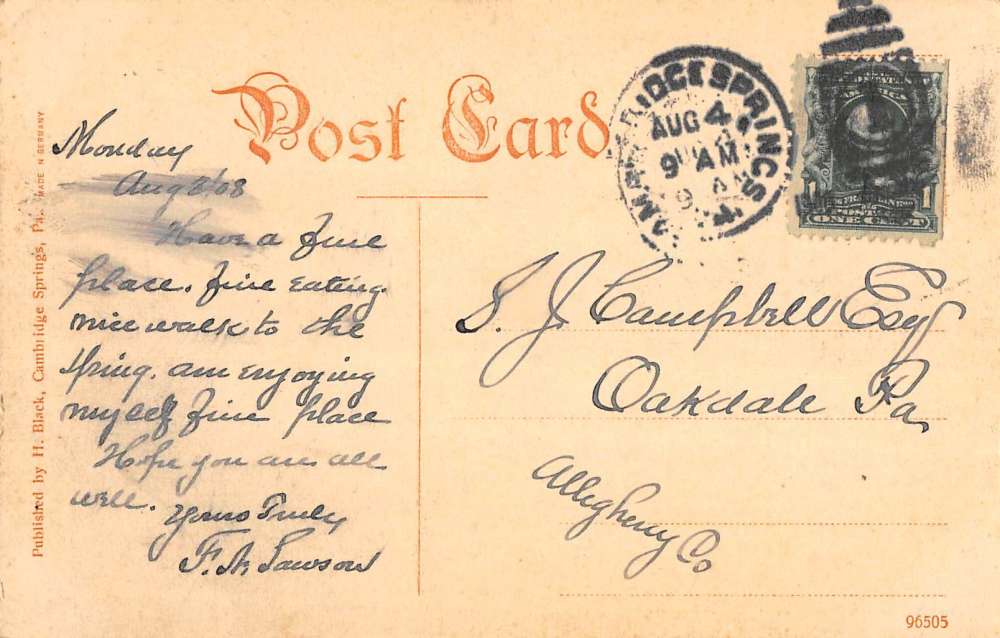 Post Card
CAMBRIDGE SPRINGS
AUG 4
9 AM
1 FRANKLIN 1
POSTAGE
ONE CENT
Monday
Aug 3/08
Have a fine
place. fine eating.
nice walk to the
spring. am enjoying
myself fine place
Hope you are all
well.
Yours Truly
Lawson
S. J. Campbell Esq
Oakdale Pa
Allegheny Co
Published by H. Black, Cambridge Springs, Pa. MADE IN GERMANY
96505